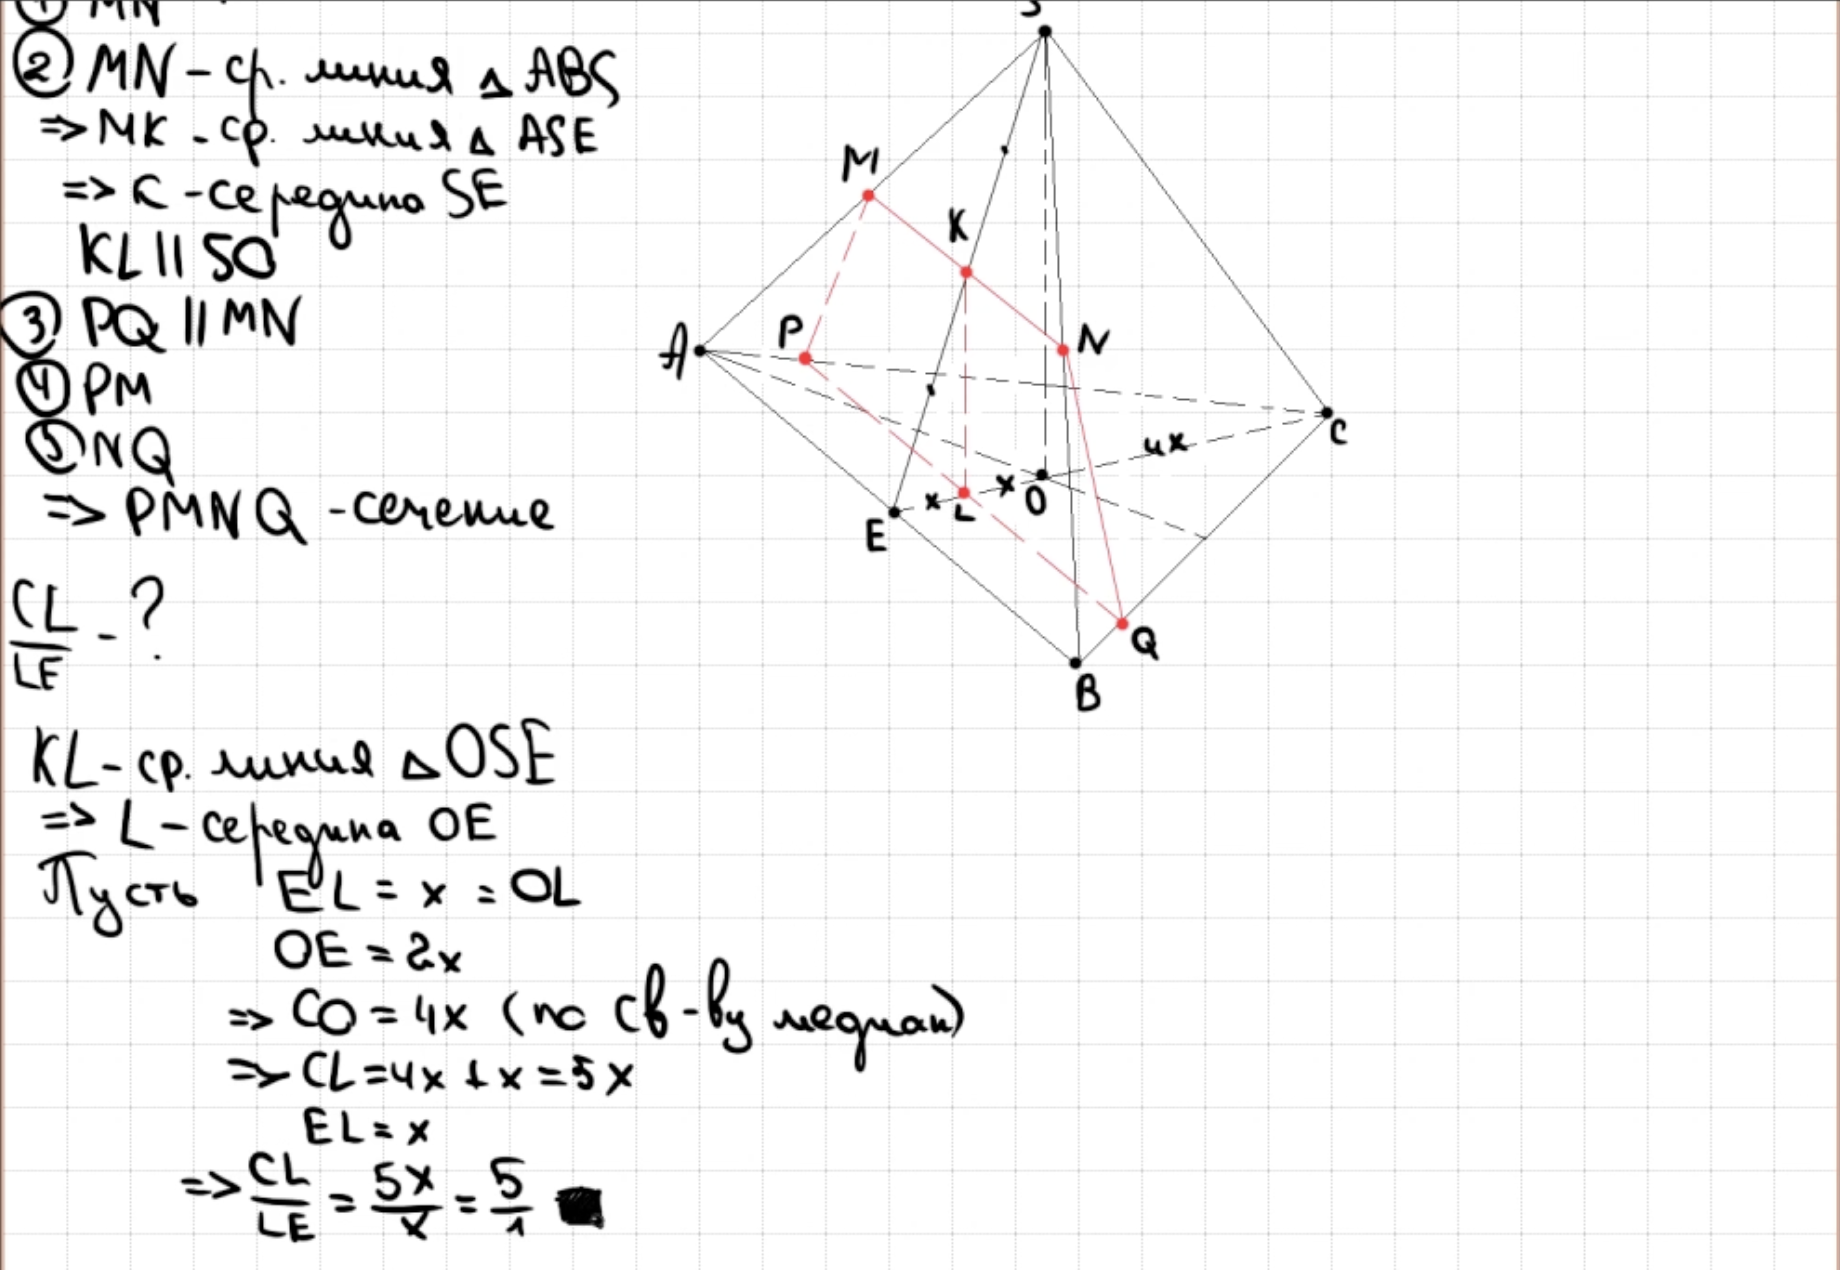 ① MN
② MN - ср. линия △ ABS
=> MK - ср. линия △ ASE
=> K - середина SE
KL || SO
③ PQ || MN
④ PM
⑤ NQ
=> PMNQ - сечение
CL/LE - ?
KL - ср. линия △ OSE
=> L - середина OE
Пусть EL = x = OL
OE = 2x
=> CO = 4x (по св-ву медиан)
=> CL = 4x + x = 5x
EL = x
=> CL/LE = 5x/x = 5/1
S
M
K
A
P
N
C
4x
x
x
O
L
E
Q
B